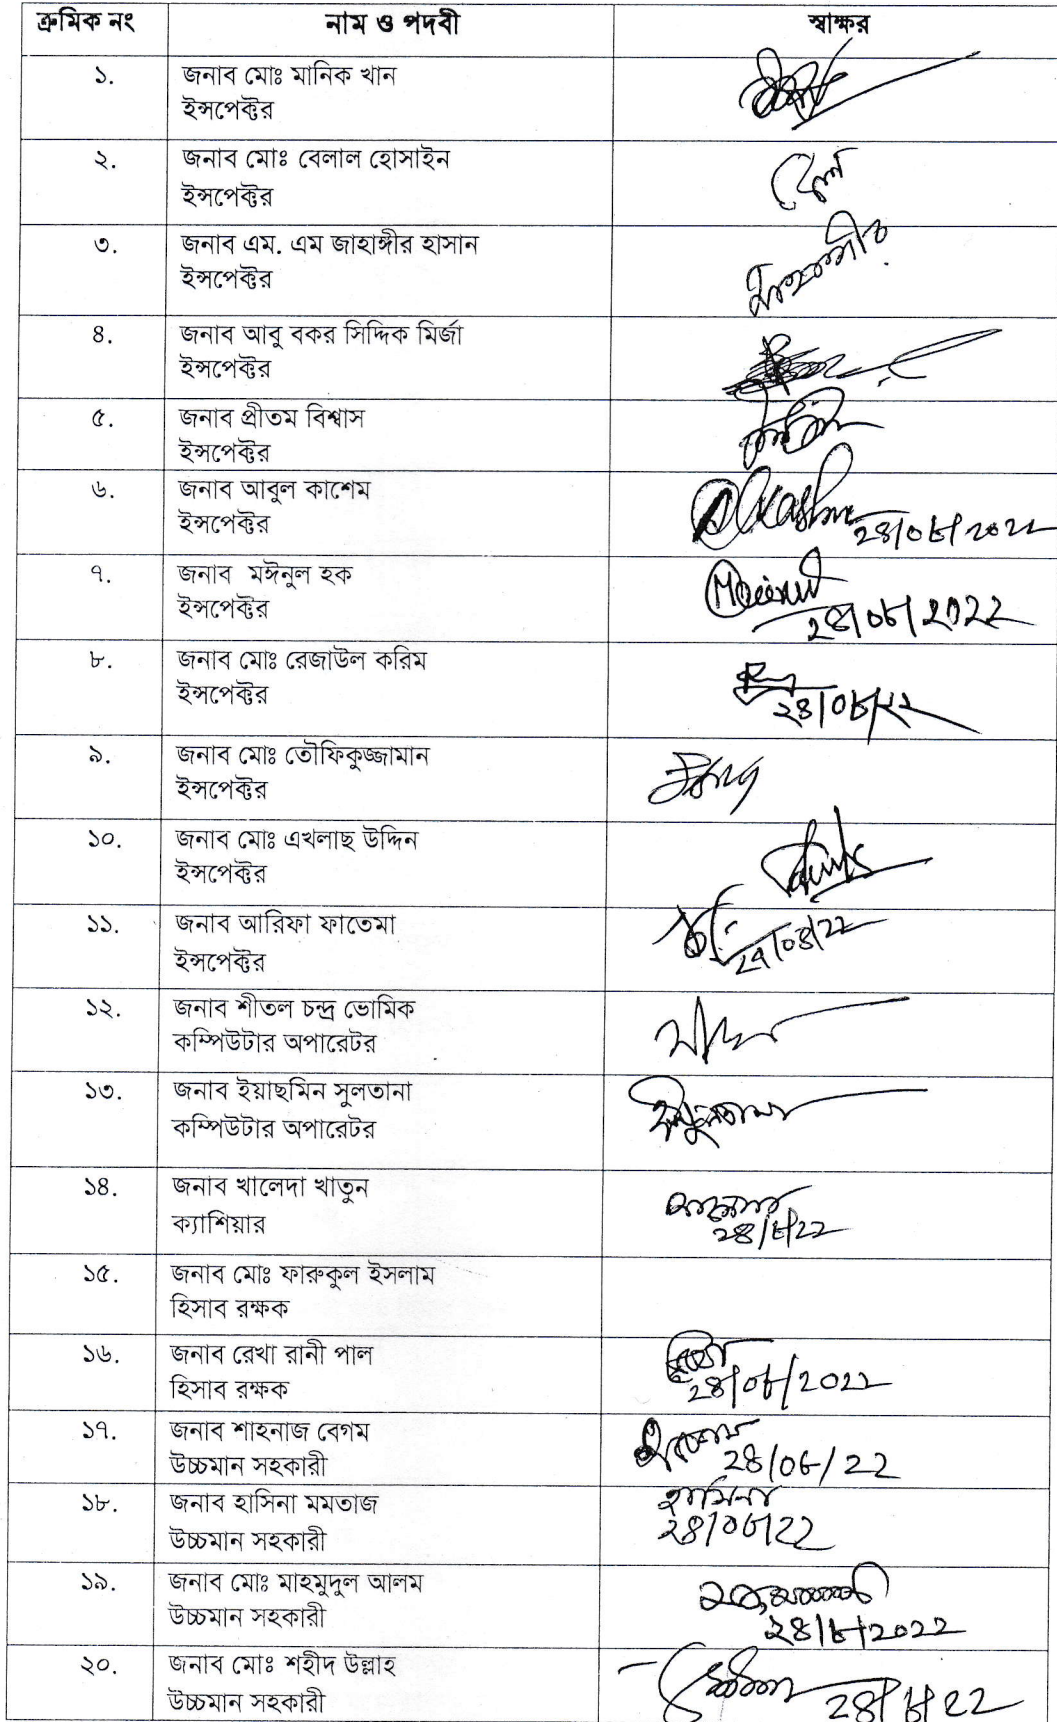 ক্রমিক নং নাম ও পদবী স্বাক্ষর
১. জনাব মোঃ মানিক খান
ইন্সপেক্টর
২. জনাব মোঃ বেলাল হোসাইন
ইন্সপেক্টর
৩. জনাব এম. এম জাহাঙ্গীর হাসান
ইন্সপেক্টর
৪. জনাব আবু বকর সিদ্দিক মির্জা
ইন্সপেক্টর
৫. জনাব প্রীতম বিশ্বাস
ইন্সপেক্টর
৬. জনাব আবুল কাশেম
ইন্সপেক্টর ২৪/০৮/২০২২
৭. জনাব মঈনুল হক Moeinul
ইন্সপেক্টর ২৪/০৮/২০২২
৮. জনাব মোঃ রেজাউল করিম
ইন্সপেক্টর ২৪/০৮/২২
৯. জনাব মোঃ তৌফিকুজ্জামান
ইন্সপেক্টর
১০. জনাব মোঃ এখলাছ উদ্দিন
ইন্সপেক্টর
১১. জনাব আরিফা ফাতেমা
ইন্সপেক্টর
১২. জনাব শীতল চন্দ্র ভোমিক
কম্পিউটার অপারেটর
১৩. জনাব ইয়াছমিন সুলতানা
কম্পিউটার অপারেটর
১৪. জনাব খালেদা খাতুন
ক্যাশিয়ার ২৪/৮/২২
১৫. জনাব মোঃ ফারুকুল ইসলাম
হিসাব রক্ষক
১৬. জনাব রেখা রানী পাল
হিসাব রক্ষক ২৪/০৮/২০২২
১৭. জনাব শাহনাজ বেগম
উচ্চমান সহকারী ২৪/০৮/২২
১৮. জনাব হাসিনা মমতাজ হাসিনা
উচ্চমান সহকারী ২৪/০৮/২২
১৯. জনাব মোঃ মাহমুদুল আলম
উচ্চমান সহকারী ২৪/৮/২০২২
২০. জনাব মোঃ শহীদ উল্লাহ
উচ্চমান সহকারী ২৪/৮/২২